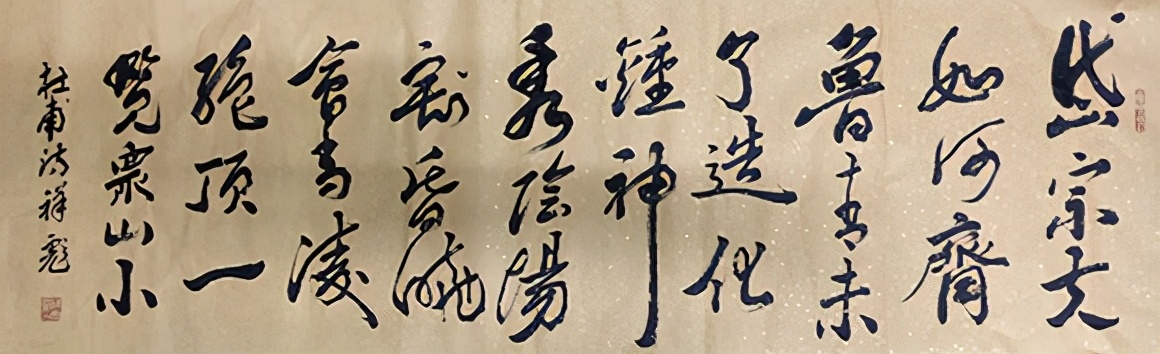 岱宗夫
如何齊
魯青未
了造化
鍾神
秀陰陽
割昏曉
會當凌
絕頂一
覽眾山小
杜甫詩祥彪